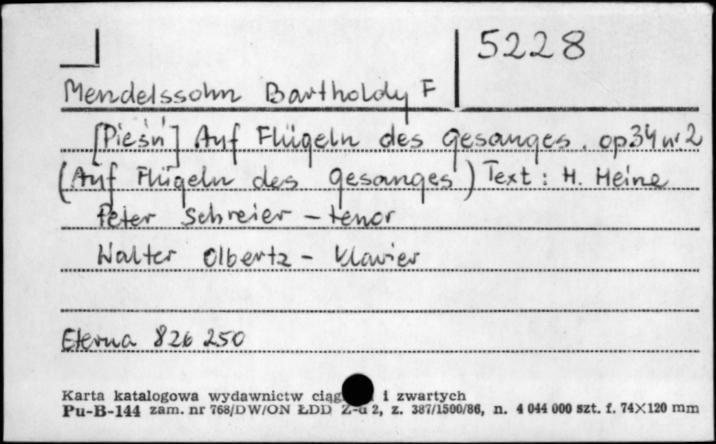 5228
Mendelssohn Bartholdy F
[Pieśń] Auf Flügeln des Gesanges. op.34 nr 2
(Auf Flügeln des Gesanges) Text: H. Heine
Peter Schreier – tenor
Walter Olbertz – Klavier
Eterna 826 250
Karta katalogowa wydawnictw i zwartych
Pu-B-144 zam. nr 768/DW/ON ŁDD Z-d 2, z. 387/1500/86, n. 4 044 000 szt. f. 74×120 mm